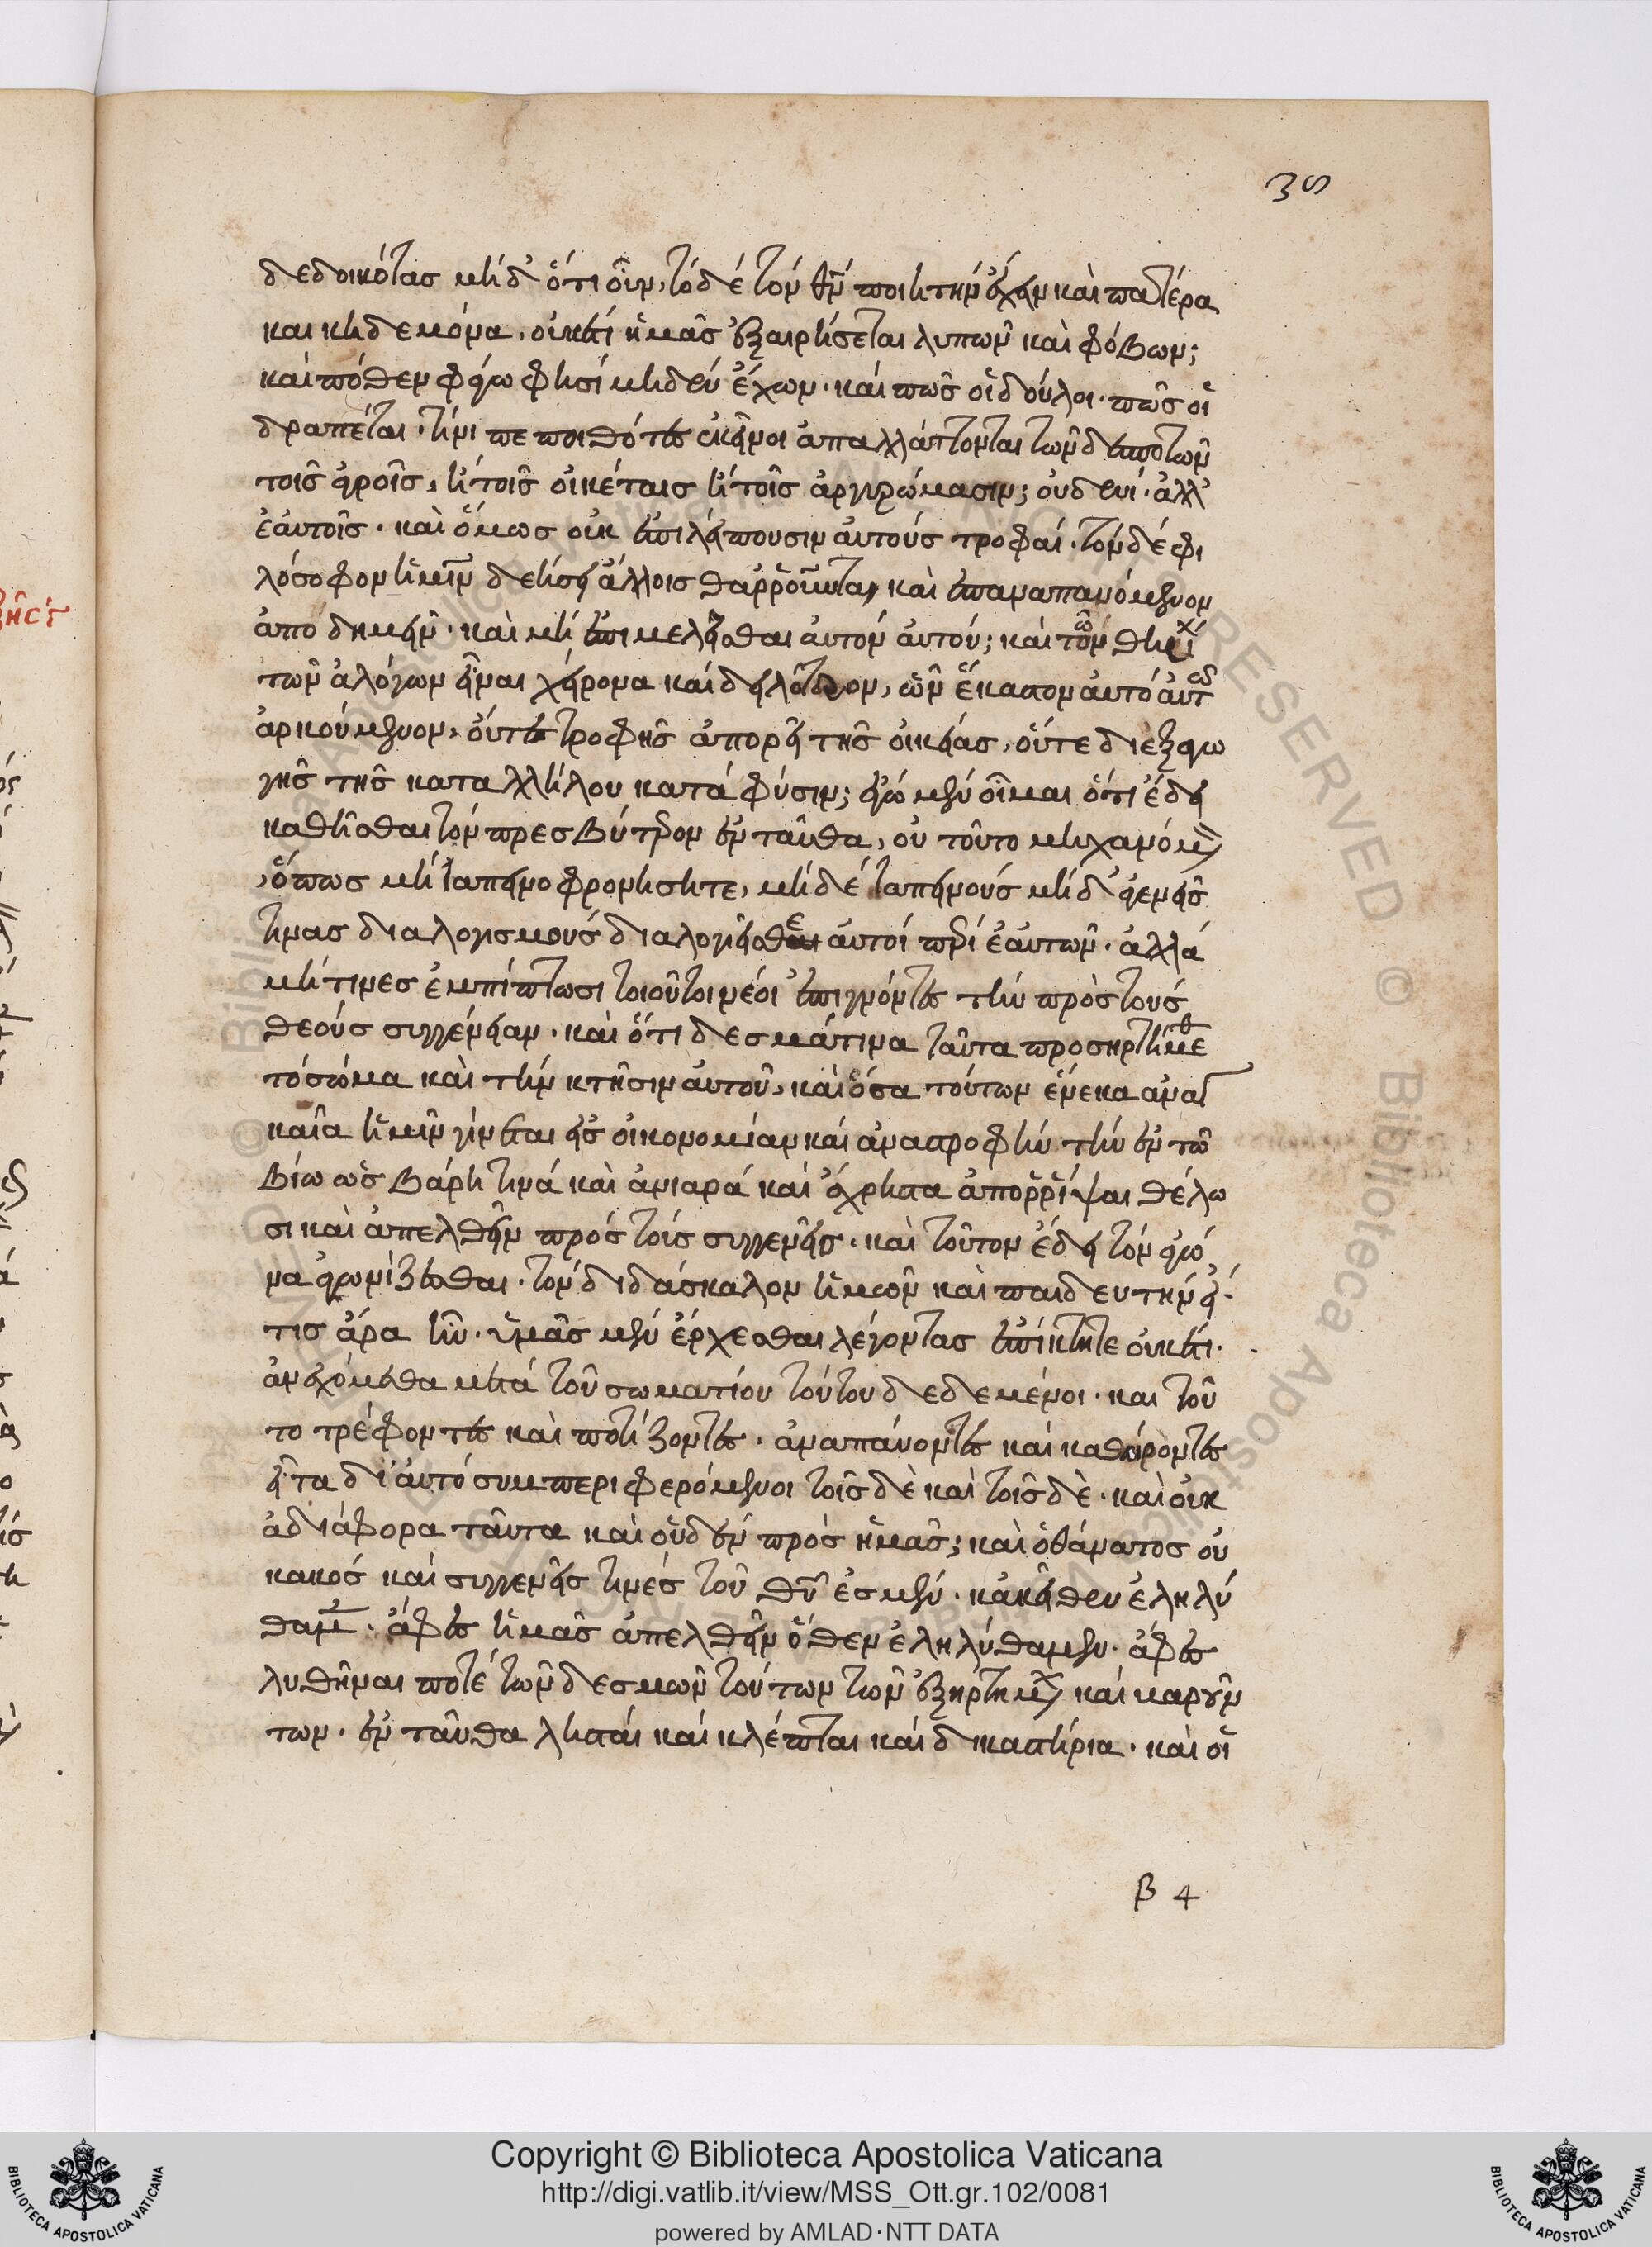 38
δεδοικότας μὴ δ' ὅτι οὖν, τὸ δὲ τὸν θν̅ ποιητὴν ἔχειν καὶ πατέρα
και κηδεμόνα. οὐκέτι ἡμᾶς ἐξαιρήσεται λυπῶν καὶ φόβων;
καὶ πόθεν φάγω φησὶ μηδὲν ἔχων. καὶ πῶς οἱ δοῦλοι. πῶς οἱ
δραπέται. τίνι πεποιθότες ἐκεῖνοι ἀπαλλάττονται τῶν δεσποτῶν
τοῖς ἀγροῖς, ἢ τοῖς οἰκέταις ἢ τοῖς ἀργυρώμασιν; οὐδενί. ἀλλ'
ἑαυτοῖς. καὶ ὅμως οὐκ ἐπιλείπουσιν αὐτοὺς τροφαί. τὸν δὲ φι
λόσοφον ἡμῖν δεήσει ἄλλοις θαρροῦντα, καὶ ἐπαναπαυόμενον
ἀποδημεῖν. καὶ μὴ ἐπιμελεῖσθαι αὐτὸν αὐτοῦ; καὶ τῶν θηρί
τῶν ἀλόγων εἶναι χείρονα καὶ δειλότερον, ὧν ἕκαστον αὐτὸ αὑτῶ
ἀρκούμενον. οὔτε τροφῆς ἀπορεῖ τῆς οἰκείας, οὔτε διεξαγω
γῆς τῆς καταλλήλου κατὰ φύσιν; ἐγὼ μὲν οἶμαι ὅτι ἔδει
καθῆσθαι τὸν πρεσβύτερον ἐνταῦθα, οὐ τοῦτο μηχανόμεν
ὅπως μὴ ταπεινοφρονησητε, μὴ δὲ ταπεινοὺς μὴ δ' ἀγενεῖς
τινας διαλογισμοὺς διαλογεῖσθε αὐτοὶ περὶ ἑαυτῶν. ἀλλὰ
μή τινες ἐμπίπτωσι τοιοῦτοι νέοι ἐπιγνόντες τὴν πρὸς τοὺς
θεοὺς συγγένειαν. καὶ ὅτι δεσμάτινα ταῦτα προσηρτήμεθ
τὸ σώμα καὶ τὴν κτῆσιν αὐτοῦ, καὶ ὅσα τούτων ἕνεκα αναγ
καῖα ἡμῖν γίνεται εἰς οἰκονομίαν καὶ ἀναστροφὴν τὴν ἐν τῶ
βίω ὡς βάρη τινὰ καὶ ἀνιαρὰ καὶ ἄχρηστα ἀπορρίψαι θέλω
σι καὶ ἀπελθεῖν πρὸς τοὶς συγγενεῖς. καὶ τοῦτον ἔδει τὸν ἀγῶ
να ἀγωνίζεσθαι. τὸν διδάσκαλον ἡμῶν καὶ παιδευτὴν εἴ.
τις ἄρα ἦν. ὑμᾶς μὲν ἔρχεσθαι λέγοντας ἐπίκτητε οὐκέτι.
ἀνεχόμεθα μετὰ τοῦ σωματίου τούτου δεδεμένοι. και τοῦ
το τρέφοντες καὶ ποτίζοντες. ἀναπαύοντες καὶ καθαίροντες
εἶτα δι' αὐτὸ συμπεριφερόμενοι τοῖς δὲ καὶ τοῖς δὲ. καὶ οὐκ
ἀδιάφορα ταῦτα καὶ οὐδὲν πρὸς ἡμᾶς; καὶ ὁ θάνατος οὐ
κακός καὶ συγγενεῖς τινές τοῦ θυ̅ ἐσμέν. κἀκεῖθεν ἐληλύ
θαμεν. ἄφες ἡμᾶς ἀπελθεῖν ὅθεν ἐληλύθαμεν. ἄφες
λυθῆναι ποτὲ τῶν δεσμῶν τούτων τῶν ἐξηρτημεν καὶ βαρούν
των. ἐνταῦθα λησταὶ καὶ κλέπται καὶ δικαστήρια. καὶ οἱ
β 4
Copyright © Biblioteca Apostolica Vaticana
http://digi.vatlib.it/view/MSS_Ott.gr.102/0081
powered by AMLAD·NTT DATA